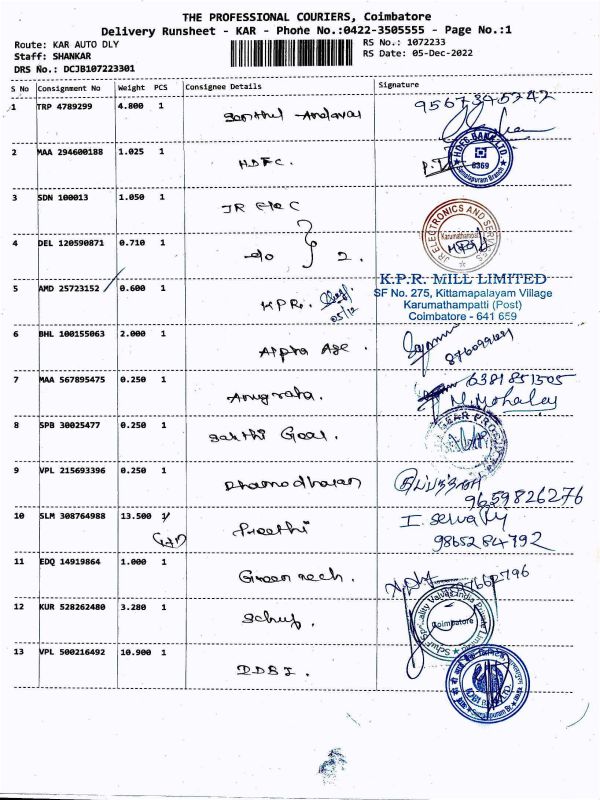 THE PROFESSIONAL COURIERS, Coimbatore
Delivery Runsheet - KAR - Phone No.:0422-3505555 - Page No.:1
Route: KAR AUTO DLY
Staff: SHANKAR
DRS No.: DCJB107223301
RS No.: 1072233
RS Date: 05-Dec-2022
S No Consignment No Weight PCS Consignee Details Signature
1 TRP 4789299 4.800 1 Senthil Andavar
HDFC BANK LTD.
6369
2 MAA 294600188 1.025 1 HDFC.
3 SDN 100013 1.050 1 JR Elec
JR ELECTRONICS AND SERVICES
Karumathampatti
4 DEL 120590871 0.710 1 do 2.
5 AMD 25723152 0.600 1 KPR. 05/12
K.P.R. MILL LIMITED
SF No. 275, Kittamapalayam Village
Karumathampatti (Post)
Coimbatore - 641 659
6 BHL 100155063 2.000 1 Alpha Age.
7 MAA 567895475 0.250 1 Anugraha.
6381851505
8 SPB 30025477 0.250 1 Sakthi Gear.
9 VPL 215693396 0.250 1 Dhamodharan
9659826276
10 SLM 308764988 13.500 1 Preethi
9865284792
11 EDQ 14919864 1.000 1 Green tech.
12 KUR 528262480 3.280 1 Schuf.
Schuf Speciality Valves India Private Limited
Coimbatore
13 VPL 500216492 10.900 1 IDBI.
IDBI BANK LTD.